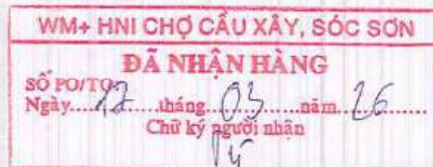 WM+ HNI CHỢ CẦU XÂY, SÓC SƠN
ĐÃ NHẬN HÀNG
SỐ PO/TO:
Ngày....12....tháng....03....năm....26....
Chữ ký người nhận